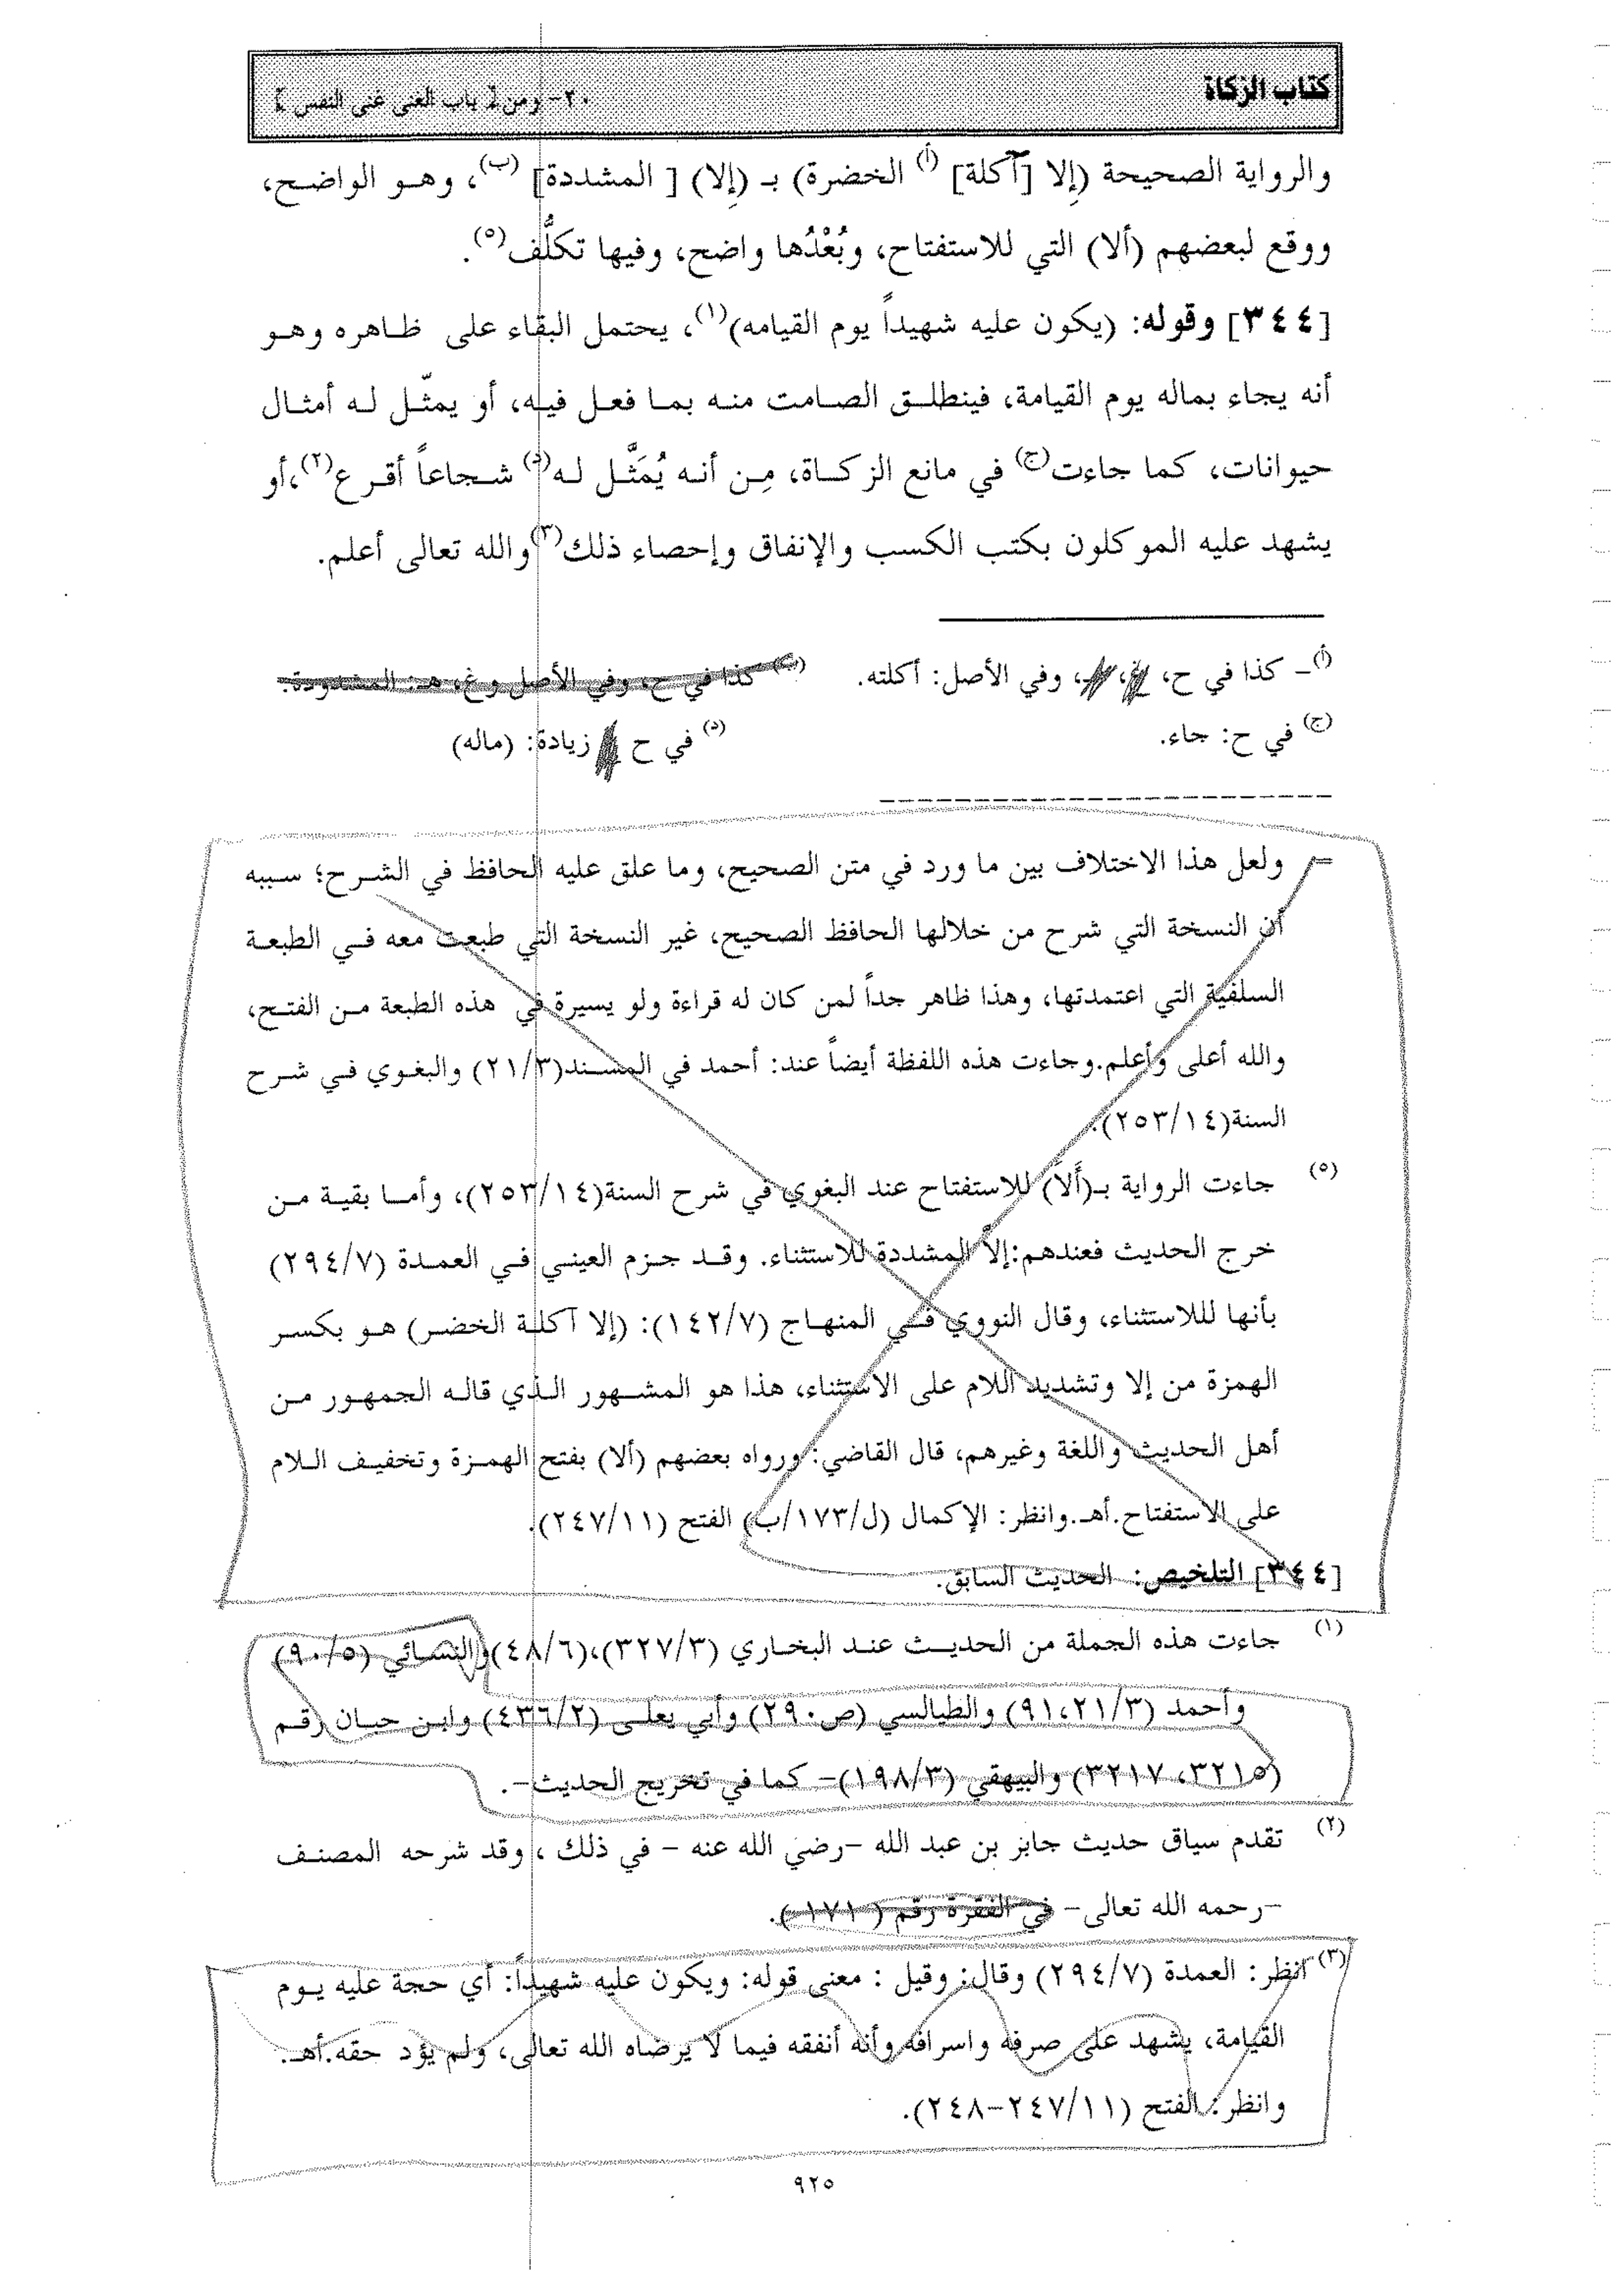 كتاب الزكاة
٢٠- ومن [ باب الغنى غنى النفس ]
والرواية الصحيحة (إلا [آكلة] (أ) الخضرة) بـ (إلا) [ المشددة] (ب)، وهو الواضح،
ووقع لبعضهم (ألا) التي للاستفتاح، وبُعْدُها واضح، وفيها تكلُّف(٥).
[٣٤٤] وقوله: (يكون عليه شهيداً يوم القيامه)(١)، يحتمل البقاء على ظاهره وهو
أنه يجاء بماله يوم القيامة، فينطلق الصامت منه بما فعل فيه، أو يمثّل له أمثال
حيوانات، كما جاءت(ج) في مانع الزكاة، مِن أنه يُمَثَّل له(د) شجاعاً أقرع(٢)،أو
يشهد عليه الموكلون بكتب الكسب والإنفاق وإحصاء ذلك(٣)والله تعالى أعلم.
(أ)- كذا في ح، ، وفي الأصل: أكلته.
(ب) كذا في ح، وفي الأصل وغ، هـ: المشدودة.
(ج) في ح: جاء.
(د) في ح زيادة: (ماله)
= ولعل هذا الاختلاف بين ما ورد في متن الصحيح، وما علق عليه الحافظ في الشرح؛ سببه
أن النسخة التي شرح من خلالها الحافظ الصحيح، غير النسخة التي طبعت معه في الطبعة
السلفية التي اعتمدتها، وهذا ظاهر جداً لمن كان له قراءة ولو يسيرة في هذه الطبعة من الفتح،
والله أعلى وأعلم.وجاءت هذه اللفظة أيضاً عند: أحمد في المسند(٢١/٣) والبغوي في شرح
السنة(٢٥٣/١٤).
(٥) جاءت الرواية بـ(أَلاَ) للاستفتاح عند البغوي في شرح السنة(٢٥٣/١٤)، وأما بقية من
خرج الحديث فعندهم:إلاَّ المشددة للاستثناء. وقد جزم العيني في العمدة (٢٩٤/٧)
بأنها لللاستثناء، وقال النووي في المنهاج (١٤٢/٧): (إلا آكلة الخضر) هو بكسر
الهمزة من إلا وتشديد اللام على الاستثناء، هذا هو المشهور الذي قاله الجمهور من
أهل الحديث واللغة وغيرهم، قال القاضي: ورواه بعضهم (ألا) بفتح الهمزة وتخفيف اللام
على الاستفتاح.أهـ.وانظر: الإكمال (ل/١٧٣/ب) الفتح (٢٤٧/١١).
[٣٤٤] التلخيص: الحديث السابق.
(١) جاءت هذه الجملة من الحديث عند البخاري (٣٢٧/٣)،(٤٨/٦)والنسائي (٩٠/٥)
وأحمد (٩١،٢١/٣) والطيالسي (ص٢٩٠) وأبي يعلى (٤٣٦/٢) وابن حبان رقم
(٣٢١٥، ٣٢١٧) والبيهقي (١٩٨/٣)- كما في تخريج الحديث-.
(٢) تقدم سياق حديث جابر بن عبد الله -رضي الله عنه - في ذلك ، وقد شرحه المصنف
-رحمه الله تعالى- في الفقرة رقم ( ١٧١).
(٣) انظر: العمدة (٢٩٤/٧) وقال: وقيل : معنى قوله: ويكون عليه شهيداً: أي حجة عليه يوم
القيامة، يشهد على صرفه واسرافه وأنه أنفقه فيما لا يرضاه الله تعالى، ولم يؤد حقه.أهـ.
وانظر: الفتح (٢٤٧/١١-٢٤٨).
٩٢٥